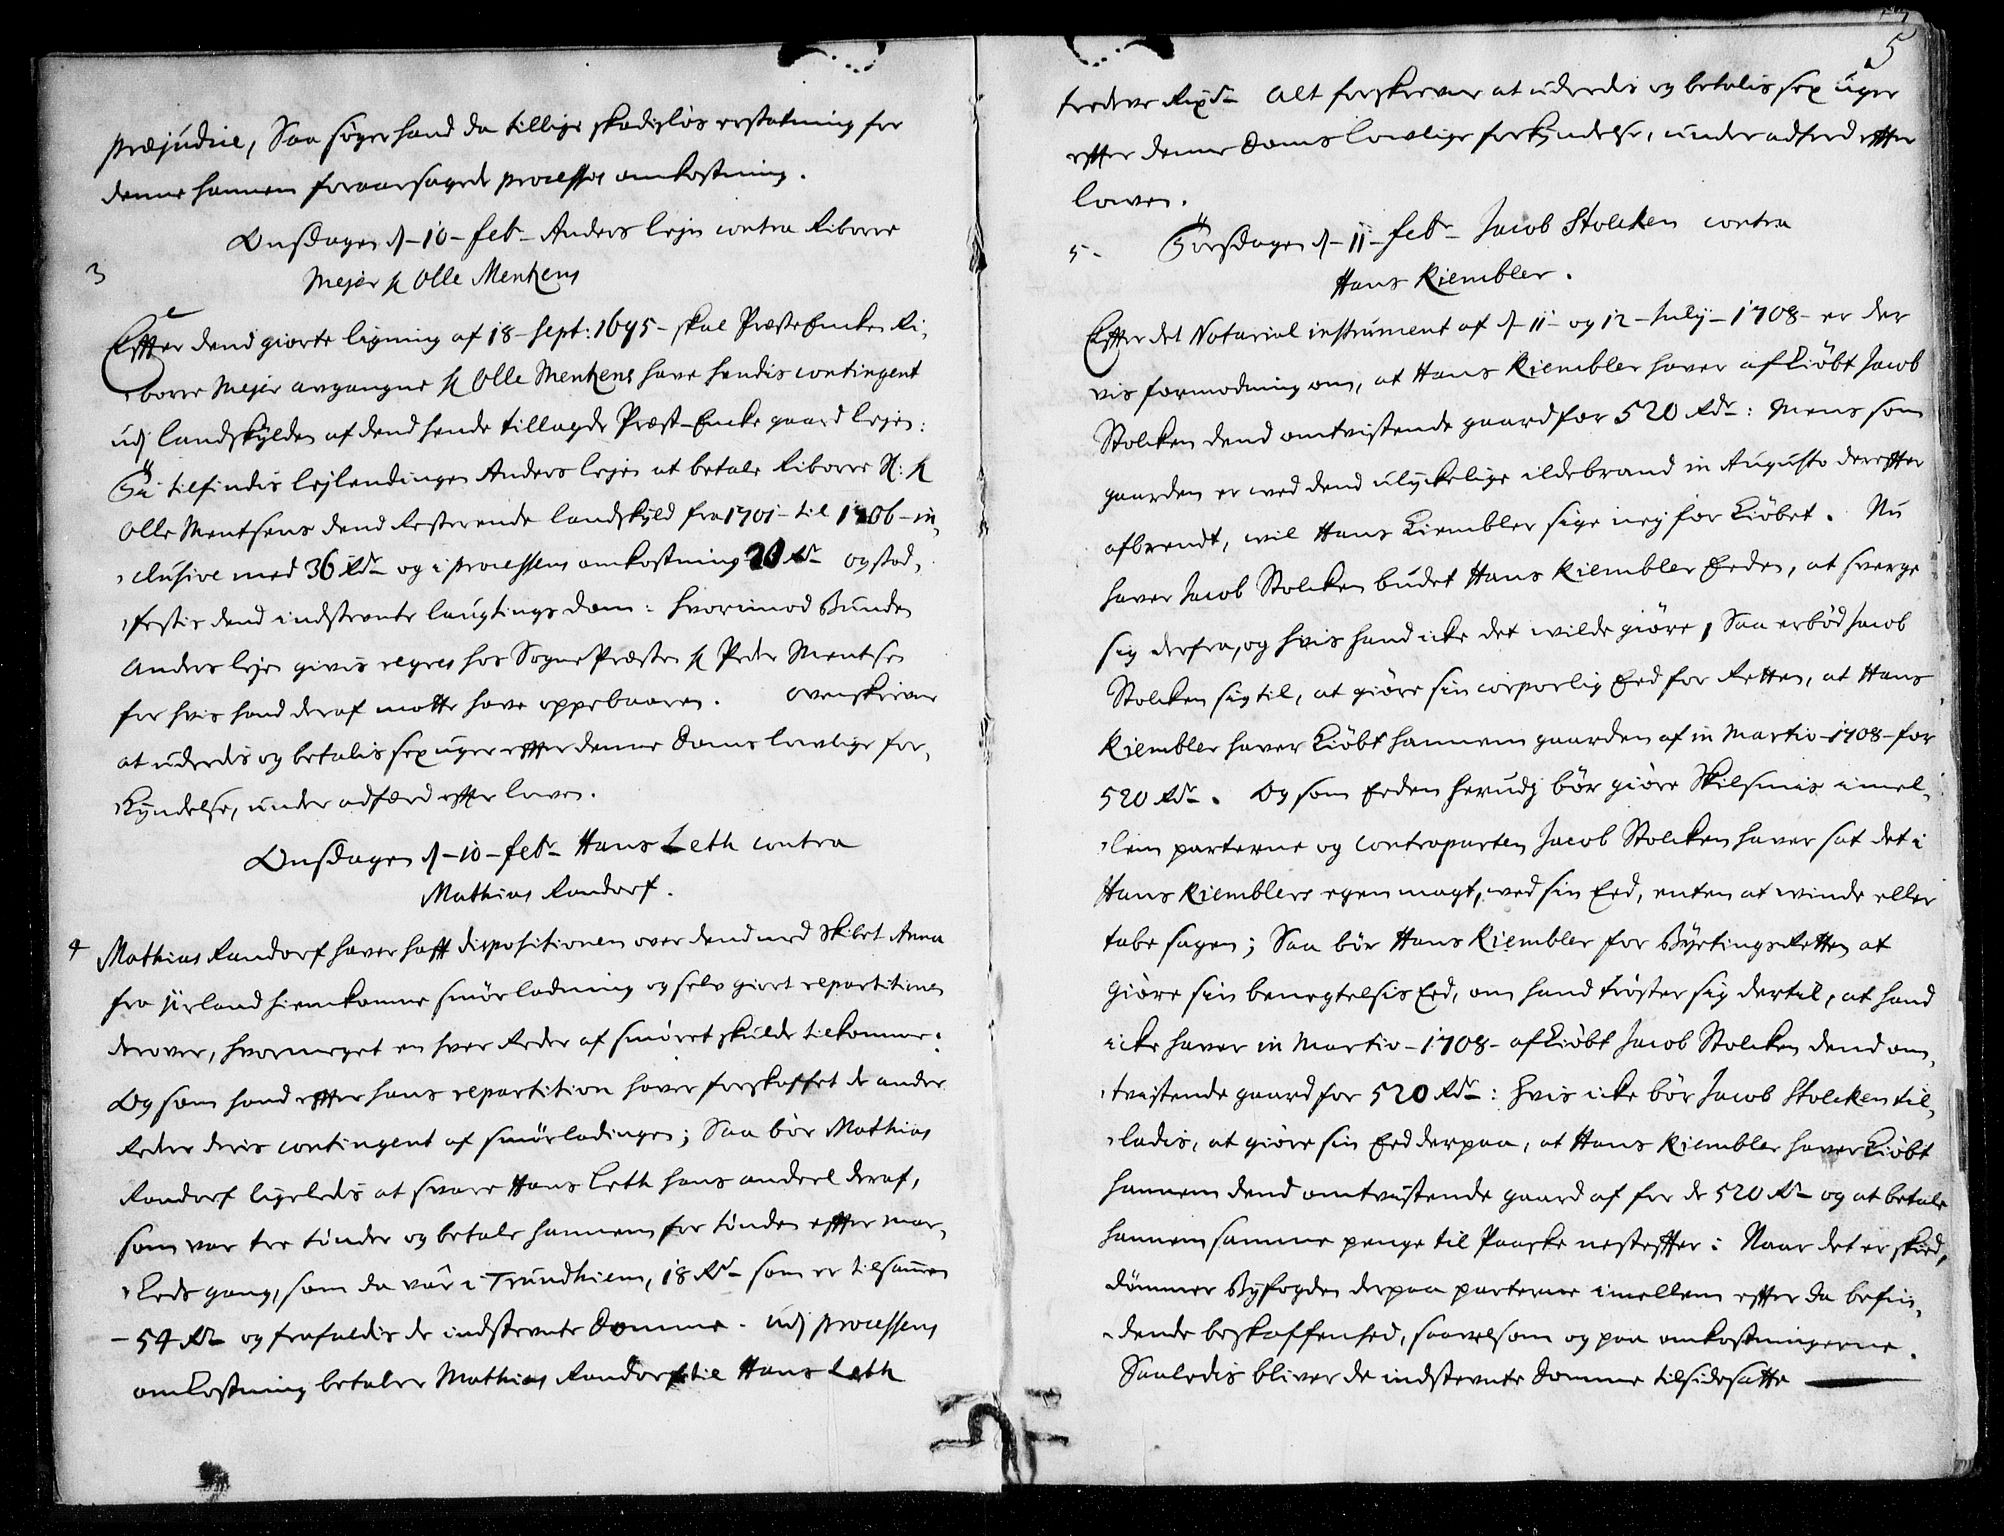 præjudice, Saa søger hand da tillige skadisløs erstatning for
denne hannem foraarsagede processes omkostning.
Onsdagen d-10-febr- Anders Lejen contra Riborre
3
Mejer h Olle Mentzens
Effter dend giorte ligning af 18-Sept: 1695- skal PræsteEncken Ri-
borre Mejer avgangne h Olle Mentzens have hendis contingent
udj landskylden af dend hende tillagde Præst-Encke gaard Lejen:
Saa tilfindis lejlendingen Anders Lejen at betale Riborre S: h
Olle Mentsens dend Resterende landskyld fra 1701- til 1706- in-
clusive med 36 Rdr- og i processens omkostning 20 Rdr og stad-
festis dend indstevnte laugtings dom: hvorimod Bunden
Anders Lejen givis regres hos Sogne Præsten h Peder Mentsen
for hvis hand deraf maatte have oppebaaren. ovenskrevne
at uderedis og betalis sex uger effter denne doms lovlige for-
kyndelse, under adfærd effter loven.
Onsdagen d-10-febr- Hans Leth contra
Mathias Randorf.
4 Mathias Randorf haver hafft dispositionen over dend med Skibet Anna
fra Jrland hiemkomne smørladning og selv giort repartitionen
derover, hvormeget en hver Reder af smøret skulde tilkomme:
Og som hand effter hans repartition haver forskaffet de andre
Redere deris contingent af smørladingen; Saa bør Mathias
Randorf ligeledis at svare Hans Leth hans andeel deraf,
som var tre tønder og betale hannem for tønden effter mar-
keds gang, som da var i Trundhiem, 18 Rdr- som er tilsammen
- 54 Rdr og frafaldis de indstevnte Domme. Udj processens
omkostning betaler Mathias Randorf til Hans Leth
5
tredeve Rixdr- Alt forskrevne at uderedis og betalis sex uger
effter denne doms lovlige forkyndelse, under adferd effter
loven.
5- Torsdagen d-11-febr- Jacob Stolcken contra
Hans Kiembler.
Effter det Notarial instrument af d-11- og 12- July- 1708- er der
vis formodning om, at Hans Kiembler haver afkiøbt Jacob
Stolcken dend omtvistende gaard for 520 Rdr: Mens som
gaarden er ved dend ulyckelige ildebrand in Augusto dereffter
afbrendt, wil Hans Kiembler sige nej for Kiøbet. Nu
haver Jacob Stolcken budet Hans Kiembler Eeden, at sverge
sig derfra, og hvis hand icke det wilde giøre, Saa erbød Jacob
Stolcken sig til, at giøre sin corporlig Eed for Retten, at Hans
Kiembler haver Kiøbt hannem gaarden af in Martio- 1708- for
520 Rdr. Og som Eeden herudj bør giøre Skilsmis imel-
lem parterne og contraparten Jacob Stolcken haver sat det i
Hans Kiemblers egen magt, ved sin Eed, enten at winde eller
tabe sagen; Saa bør Hans Kiembler for Byetings Retten at
giøre sin benegtelsis Eed, om hand trøster sig dertil, at hand
icke haver in Martio- 1708- afkiøbt Jacob Stolcken dend om-
tvistende gaard for 520 Rdr: hvis icke bør Jacob Stolcken til-
ladis, at giøre sin Eed derpaa, at Hans Kiembler haver Kiøbt
hannem dend omtvistende gaard af for de 520 Rdr og at betale
hannem samme penge til Paaske nesteffter: Naar det er skeed,
dømmer Byfogden derpaa parterne imellem effter da befin-
dende beskaffenhed, saavelsom og paa omkostningerne.
Saaledis bliver de indstevnte Domme tilsidesatte